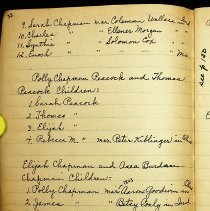 9. Sarah Chapman mar Coleman Wallace Ind
10. Charles " " Ellener Morgan "
11. Synthia " " Solomon Cox "
12. Enoch " " Mo
Polly Chapman Peacock and Thomas
Peacock Children:
1. Sarah Peacock
2. Thomas "
3. Elijah "
4. Rebecca M. " mar. Peter Kiblinger in
Elijah Chapman and Asea Burdass
Chapman Children:
1. Polly Chapman mar Aaron Goodwin
2. James " " Betsy Cooly in Ind
see p 180